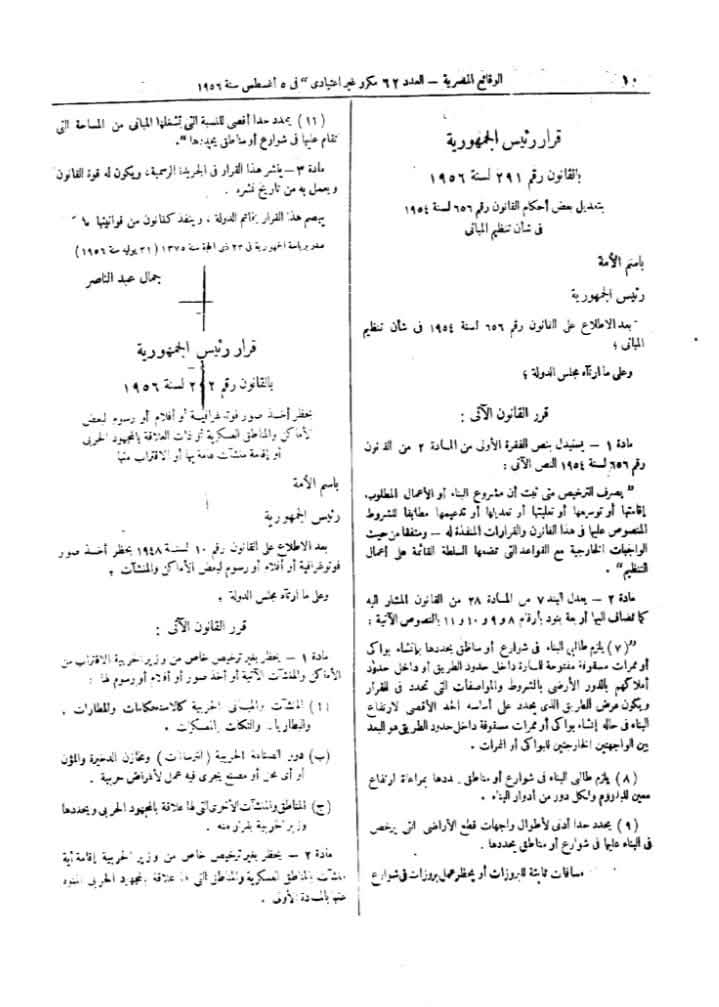 ١٠
الوقائع المصرية – العدد ٦٢ مكرر غير اعتيادى" فى ٥ أغسطس سنة ١٩٥٦
قرار رئيس الجمهورية
بالقانون رقم ٢٩١ لسنة ١٩٥٦
بتعديل بعض أحكام القانون رقم ٦٥٦ لسنة ١٩٥٤
فى شأن تنظيم المبانى
باسم الأمة
رئيس الجمهورية
بعد الاطلاع على القانون رقم ٦٥٦ لسنة ١٩٥٤ فى شأن تنظيم
المبانى ؛
وعلى ما ارتآه مجلس الدولة ؛
قرر القانون الآتى :
مادة ١ – يستبدل بنص الفقرة الأولى من المادة ٢ من القانون
رقم ٦٥٦ لسنة ١٩٥٤ النص الآتى :
" يصرف الترخيص متى ثبت أن مشروع البناء أو الأعمال المطلوب
إقامتها أو توسيعها أو تعليتها أو تعديلها أو تدعيمها مطابقا للشروط
المنصوص عليها فى هذا القانون والقرارات المنفذة له – ومتفقا من حيث
الواجهات الخارجية مع القواعد التى تضعها السلطة القائمة على أعمال
التنظيم" .
مادة ٢ – يعدل البند ٧ من المادة ٢٨ من القانون المشار اليه
كما تضاف اليها أربعة بنود بأرقام ٨ و ٩ و ١٠ و ١١ بالنصوص الآتية :
"(٧) يلزم طالبى البناء فى شوارع أو مناطق يحددها بإنشاء بواكى
أو ممرات مسقوفة مفتوحة للمارة داخل حدود الطريق أو داخل حدود
أملاكهم بالدور الأرضى بالشروط والمواصفات التى تحدد فى القرار
ويكون عرض الطريق الذى يحدد على أساسه الحد الأقصى لارتفاع
البناء فى حالة إنشاء بواكى أو ممرات مسقوفة داخل حدود الطريق هو البعد
بين الواجهتين الخارجتين للبواكى أو الممرات .
(٨) يلزم طالبى البناء فى شوارع أو مناطق يحددها بمراعاة ارتفاع
معين للبدروم ولكل دور من أدوار البناء .
(٩) يحدد حدا أدنى لأطوال واجهات قطع الأراضى التى يرخص
فى البناء عليها فى شوارع أو مناطق يحددها .
مسافات ثابتة للبروزات أو يحظر عمل بروزات فى شوارع
(١١) يحدد حدا أقصى للنسبة التى تشغلها المبانى من المساحة التى
تقام عليها فى شوارع أو مناطق يحددها" .
مادة ٣ – ينشر هذا القرار فى الجريدة الرسمية، ويكون له قوة القانون
ويعمل به من تاريخ نشره .
يبصم هذا القرار بخاتم الدولة ، وينفذ كقانون من قوانينها
صدر برياسة الجمهورية فى ٢٣ ذى الحجة سنة ١٣٧٥ (٣١ يوليه سنة ١٩٥٦)
جمال عبد الناصر
قرار رئيس الجمهورية
بالقانون رقم ٢٩٢ لسنة ١٩٥٦
بحظر أخذ صور فوتوغرافية أو أفلام أو رسوم لبعض
الأماكن والمناطق العسكرية أو ذات العلاقة بالمجهود الحربى
أو إقامة منشآت عامة بها أو الاقتراب منها
باسم الأمة
رئيس الجمهورية
بعد الاطلاع على القانون رقم ١٠ لسنة ١٩٤٨ بحظر أخذ صور
فوتوغرافية أو أفلام أو رسوم لبعض الأماكن والمنشآت ؛
وعلى ما ارتآه مجلس الدولة ،
قرر القانون الآتى :
مادة ١ – يحظر بغير ترخيص خاص من وزير الحربية الاقتراب من
الأماكن والمنشآت الآتية أو أخذ صور أو أفلام أو رسوم لها :
(أ) المنشآت والمبانى الحربية كالاستحكامات والمطارات
والبطاريات والثكنات والمعسكرات .
(ب) دور الصناعة الحربية (الترسانات) ومخازن الذخيرة والمؤن
أو أى محل أو مصنع يجرى فيه عمل لأغراض حربية .
(ج) المناطق والمنشآت الأخرى التى لها علاقة بالمجهود الحربى ويحددها
وزير الحربية بقرار منه .
مادة ٢ – يحظر بغير ترخيص خاص من وزير الحربية إقامة أية
منشآت بالمناطق العسكرية والمناطق التى لها علاقة بالمجهود الحربى المنوه
عنها بالمادة الأولى .